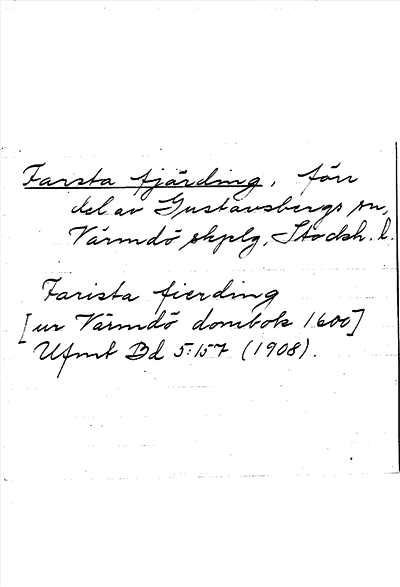 Farsta fjärding, förr
del av Gustavsbergs sn,
Värmdö skplg, Stockh. l.
Farista fierding
[ur Värmdö dombok 1600]
Ufmt Bd 5:157 (1908).